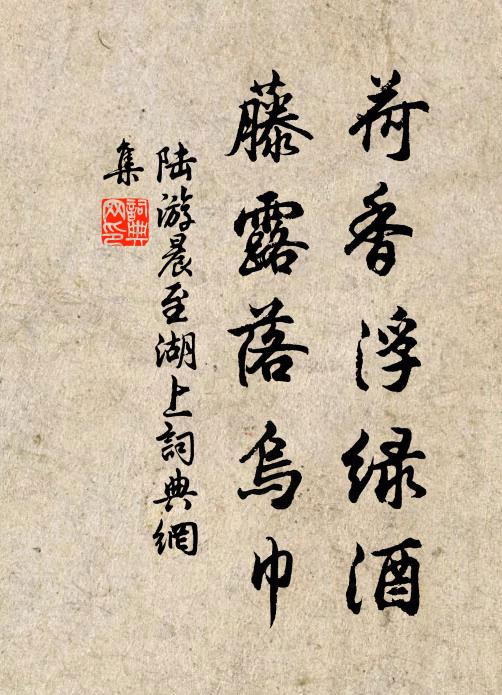 荷香浮绿酒
藤露落乌巾
陆游晨至湖上詞典網
集
詞典網印